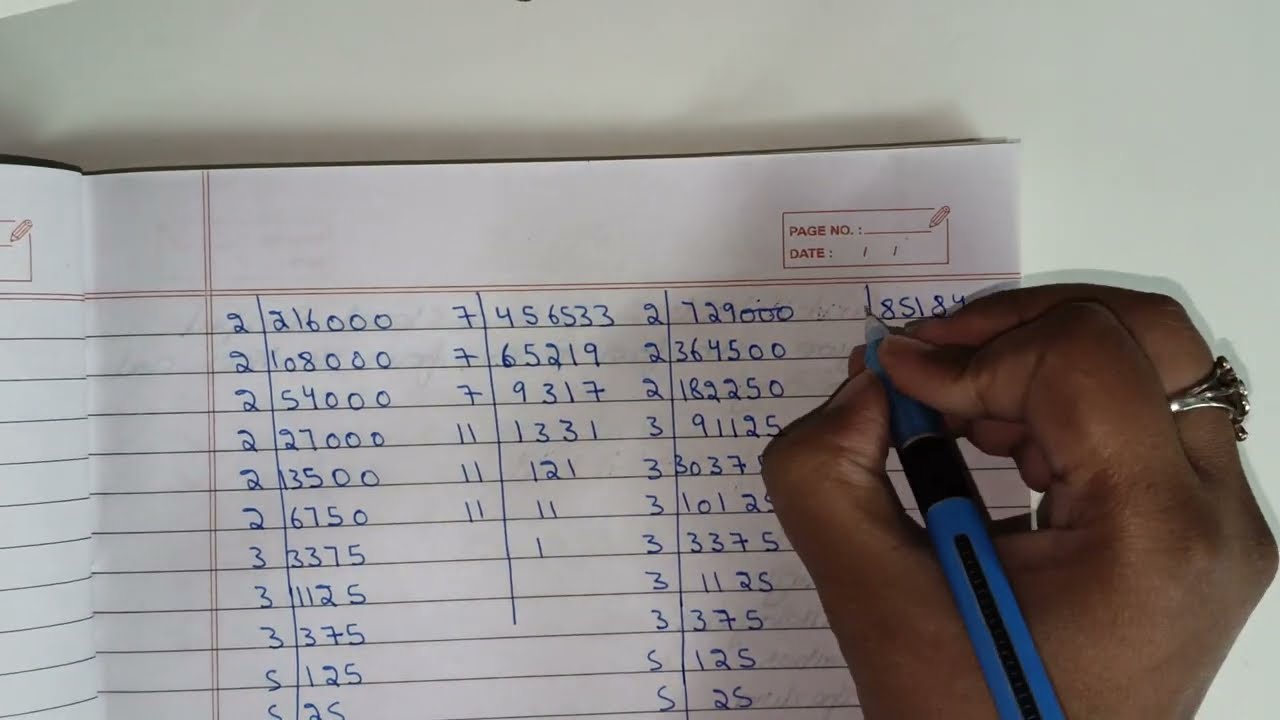 PAGE NO. :
DATE : / /
2 216000 7 456533 2 729000 85184
2 108000 7 65219 2 364500
2 54000 7 9317 2 182250
2 27000 11 1331 3 91125
2 13500 11 121 3
2 6750 11 11 3 10125
3 3375 1 3 3375
3 1125 3 1125
3 375 3 375
5 125 5 125
5 25 5 25